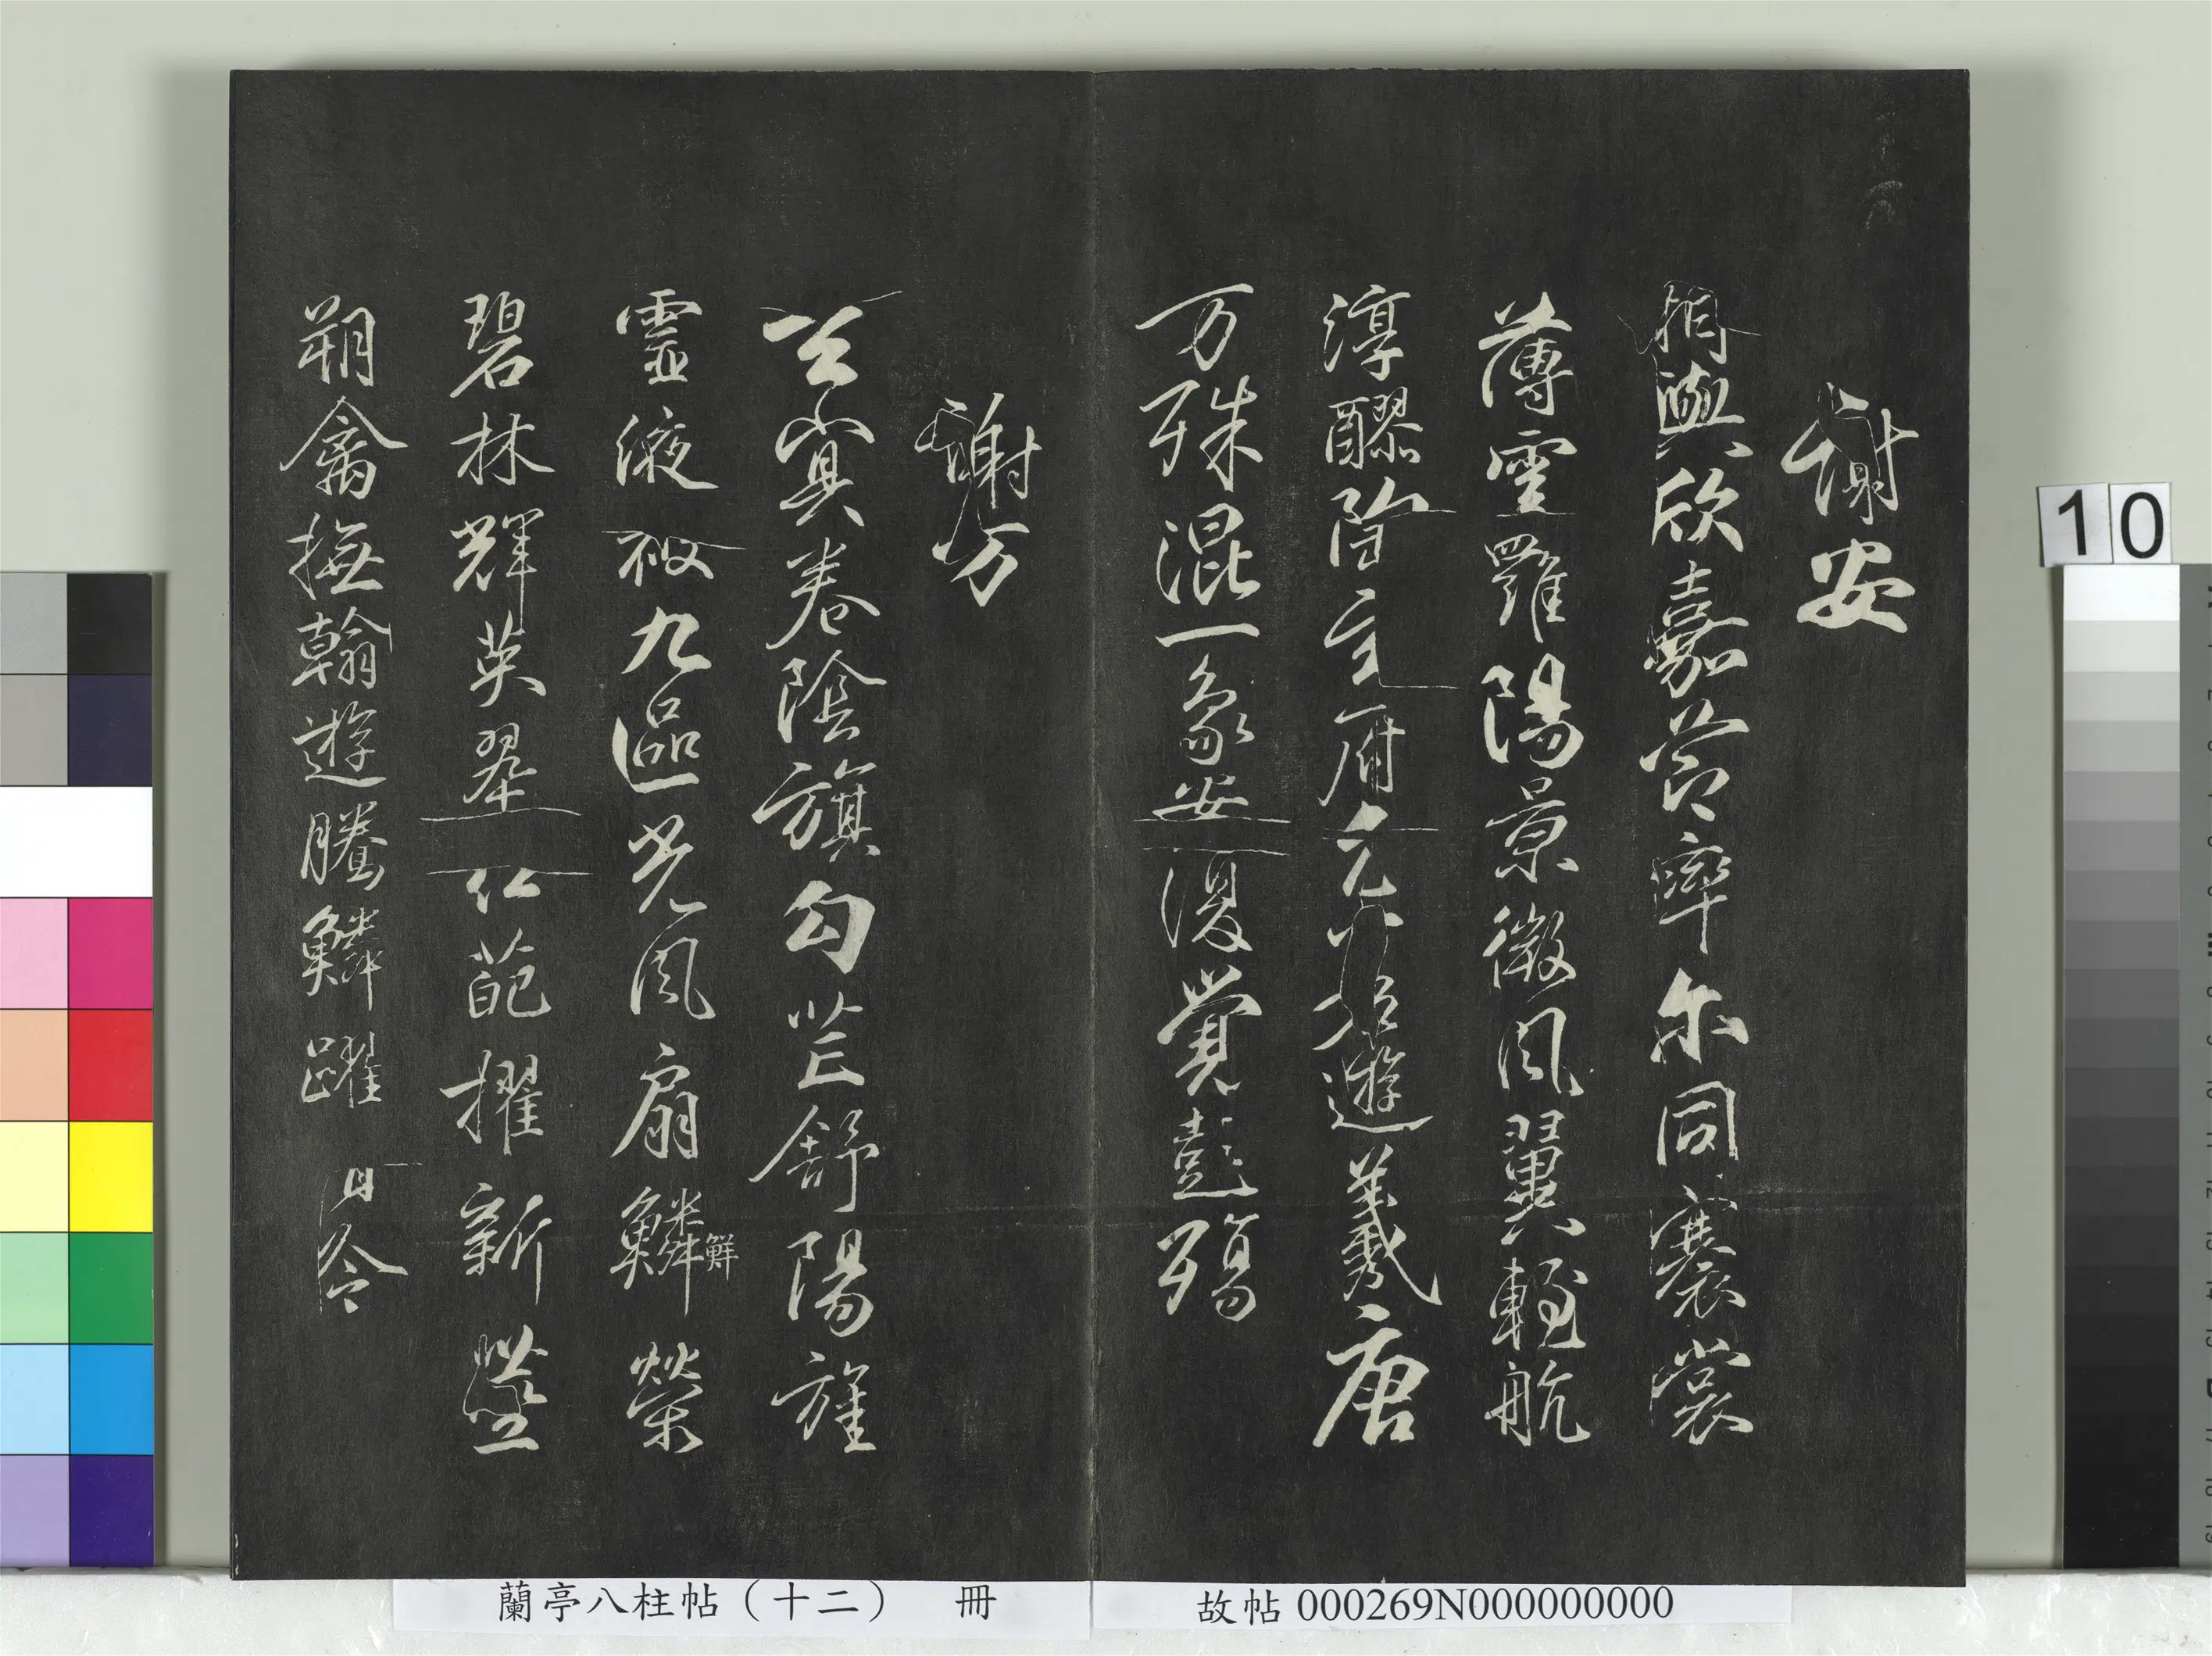 謝安
相與欣嘉節率尔同褰裳
薄雲羅陽景微風翼輕航
淳醪陶玄府兀若遊羲唐
万殊混一象安復覺彭殤
謝万
玄冥卷陰旗勾芒舒陽旌
靈液被九區光風扇鱗鮮榮
碧林輝英翠紅葩擢新莖
翔禽撫翰遊騰鱗躍清泠
蘭亭八柱帖（十二） 冊
故帖 000269N000000000
10